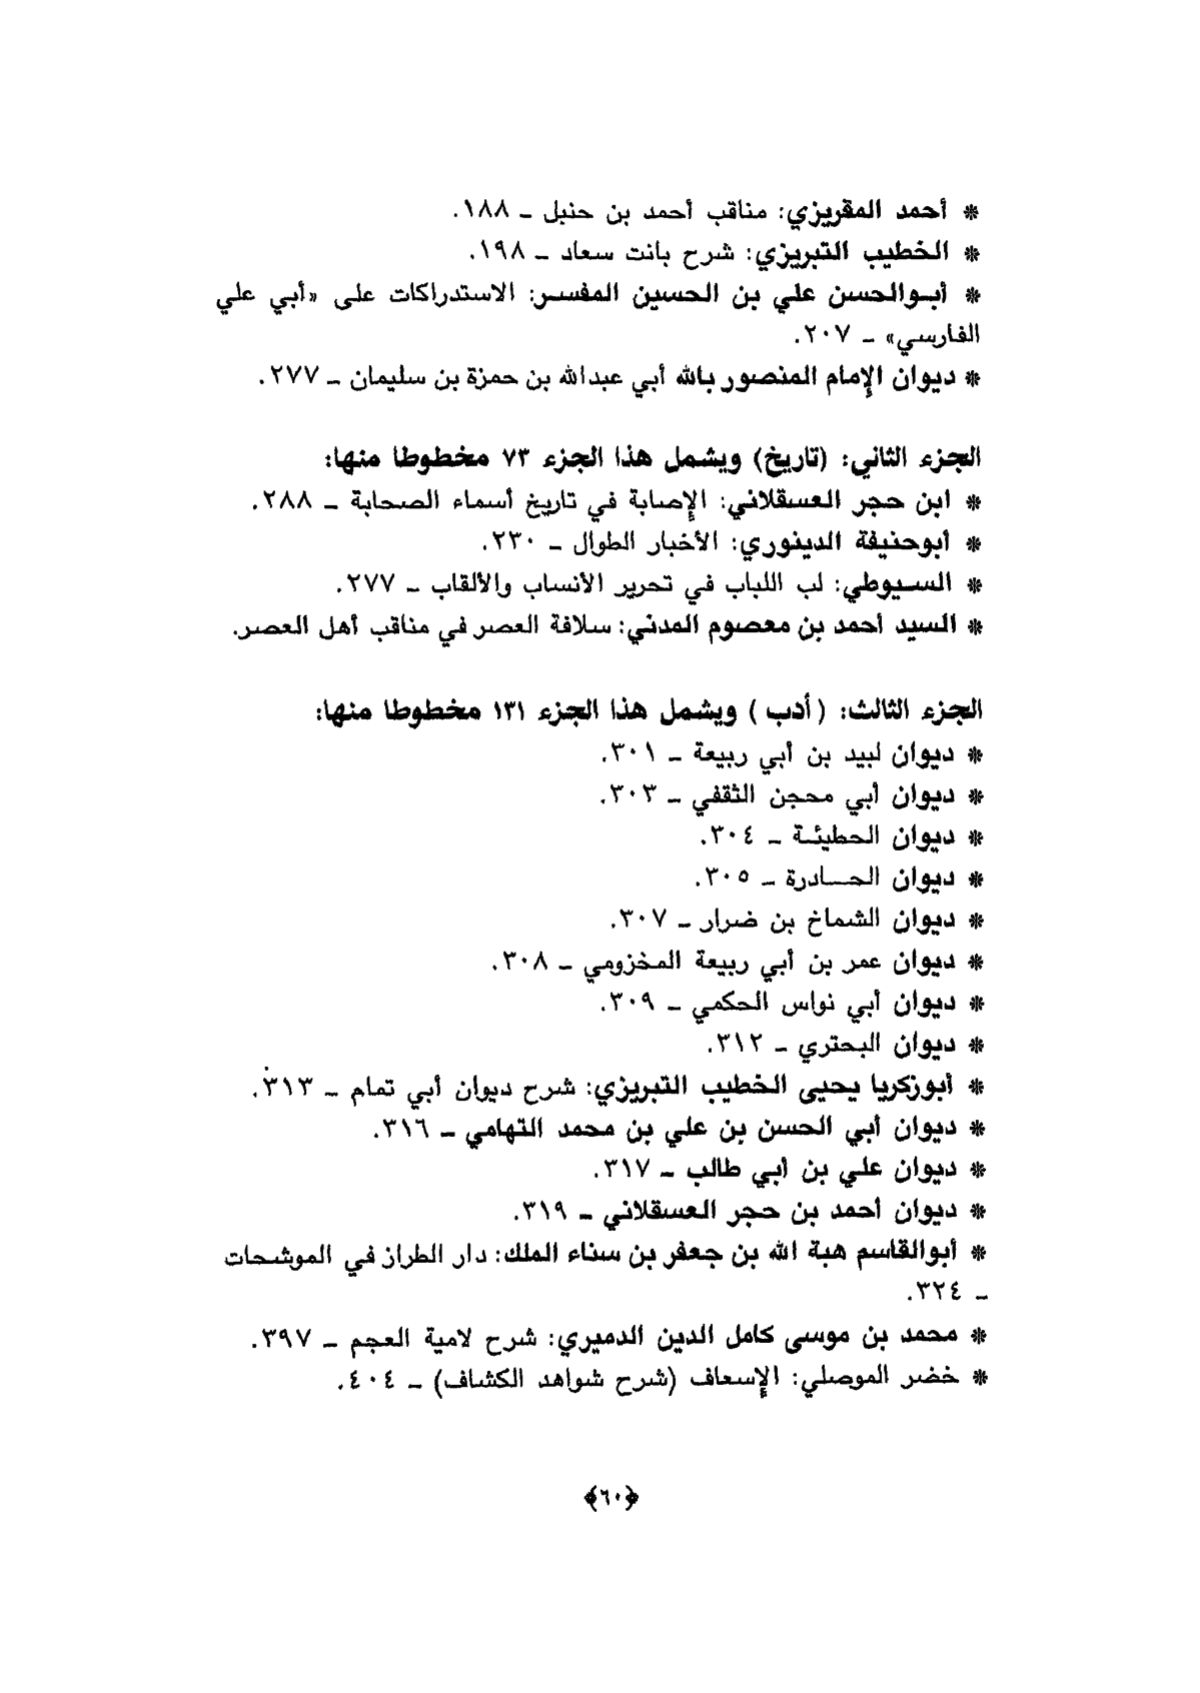 * أحمد المقريزي: مناقب أحمد بن حنبل ـ ١٨٨.
* الخطيب التبريزي: شرح بانت سعاد ـ ١٩٨.
* أبوالحسن علي بن الحسين المفسر: الاستدراكات على «أبي علي
الفارسي» ـ ٢٠٧.
* ديوان الإمام المنصور بالله أبي عبدالله بن حمزة بن سليمان ـ ٢٧٧.
الجزء الثاني: (تاريخ) ويشمل هذا الجزء ٧٣ مخطوطا منها:
* ابن حجر العسقلاني: الإصابة في تاريخ أسماء الصحابة ـ ٢٨٨.
* أبوحنيفة الدينوري: الأخبار الطوال ـ ٢٣٠.
* السيوطي: لب اللباب في تحرير الأنساب والألقاب ـ ٢٧٧.
* السيد أحمد بن معصوم المدني: سلافة العصر في مناقب أهل العصر.
الجزء الثالث: (أدب) ويشمل هذا الجزء ١٣١ مخطوطا منها:
* ديوان لبيد بن أبي ربيعة ـ ٣٠١.
* ديوان أبي محجن الثقفي ـ ٣٠٣.
* ديوان الحطيئة ـ ٣٠٤.
* ديوان الحادرة ـ ٣٠٥.
* ديوان الشماخ بن ضرار ـ ٣٠٧.
* ديوان عمر بن أبي ربيعة المخزومي ـ ٣٠٨.
* ديوان أبي نواس الحكمي ـ ٣٠٩.
* ديوان البحتري ـ ٣١٢.
* أبوزكريا يحيى الخطيب التبريزي: شرح ديوان أبي تمام ـ ٣١٣.
* ديوان أبي الحسن بن علي بن محمد التهامي ـ ٣١٦.
* ديوان علي بن أبي طالب ـ ٣١٧.
* ديوان أحمد بن حجر العسقلاني ـ ٣١٩.
* أبوالقاسم هبة الله بن جعفر بن سناء الملك: دار الطراز في الموشحات
ـ ٣٢٤.
* محمد بن موسى كامل الدين الدميري: شرح لامية العجم ـ ٣٩٧.
* خضر الموصلي: الإسعاف (شرح شواهد الكشاف) ـ ٤٠٤.
﴿٦٠﴾